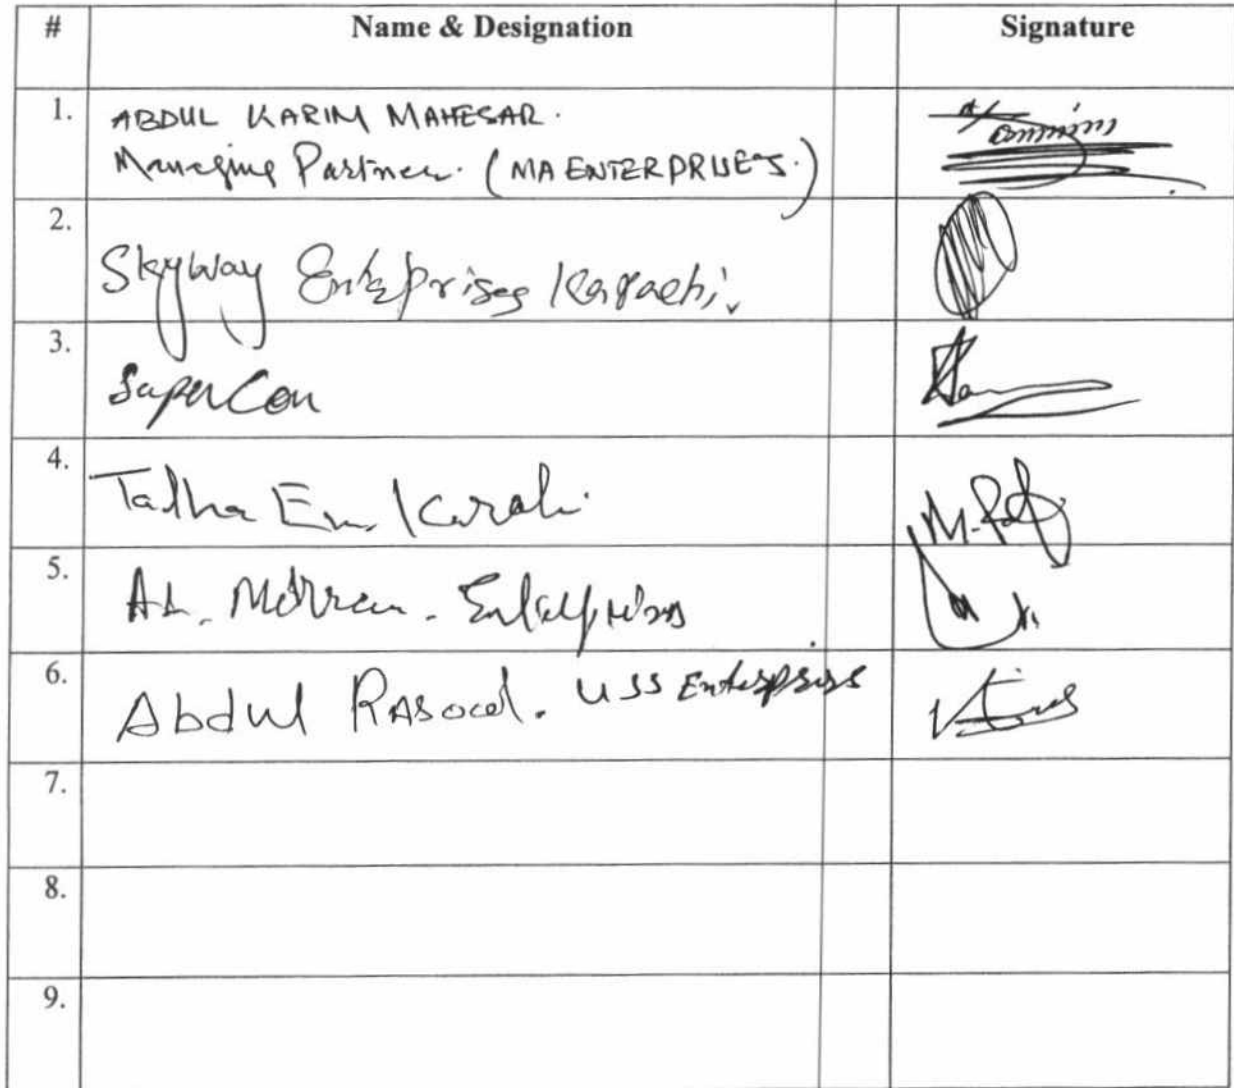 # Name & Designation Signature
1. ABDUL KARIM MAHESAR.
Managing Partner. (MA ENTERPRISES.)
2.
Skyway Enterprises Karachi.
3.
SuperCon
4.
Talha En. Karachi
M.
5.
AL. Enterprises
6.
Abdul RAsool. USS Enterprises
7.
8.
9.